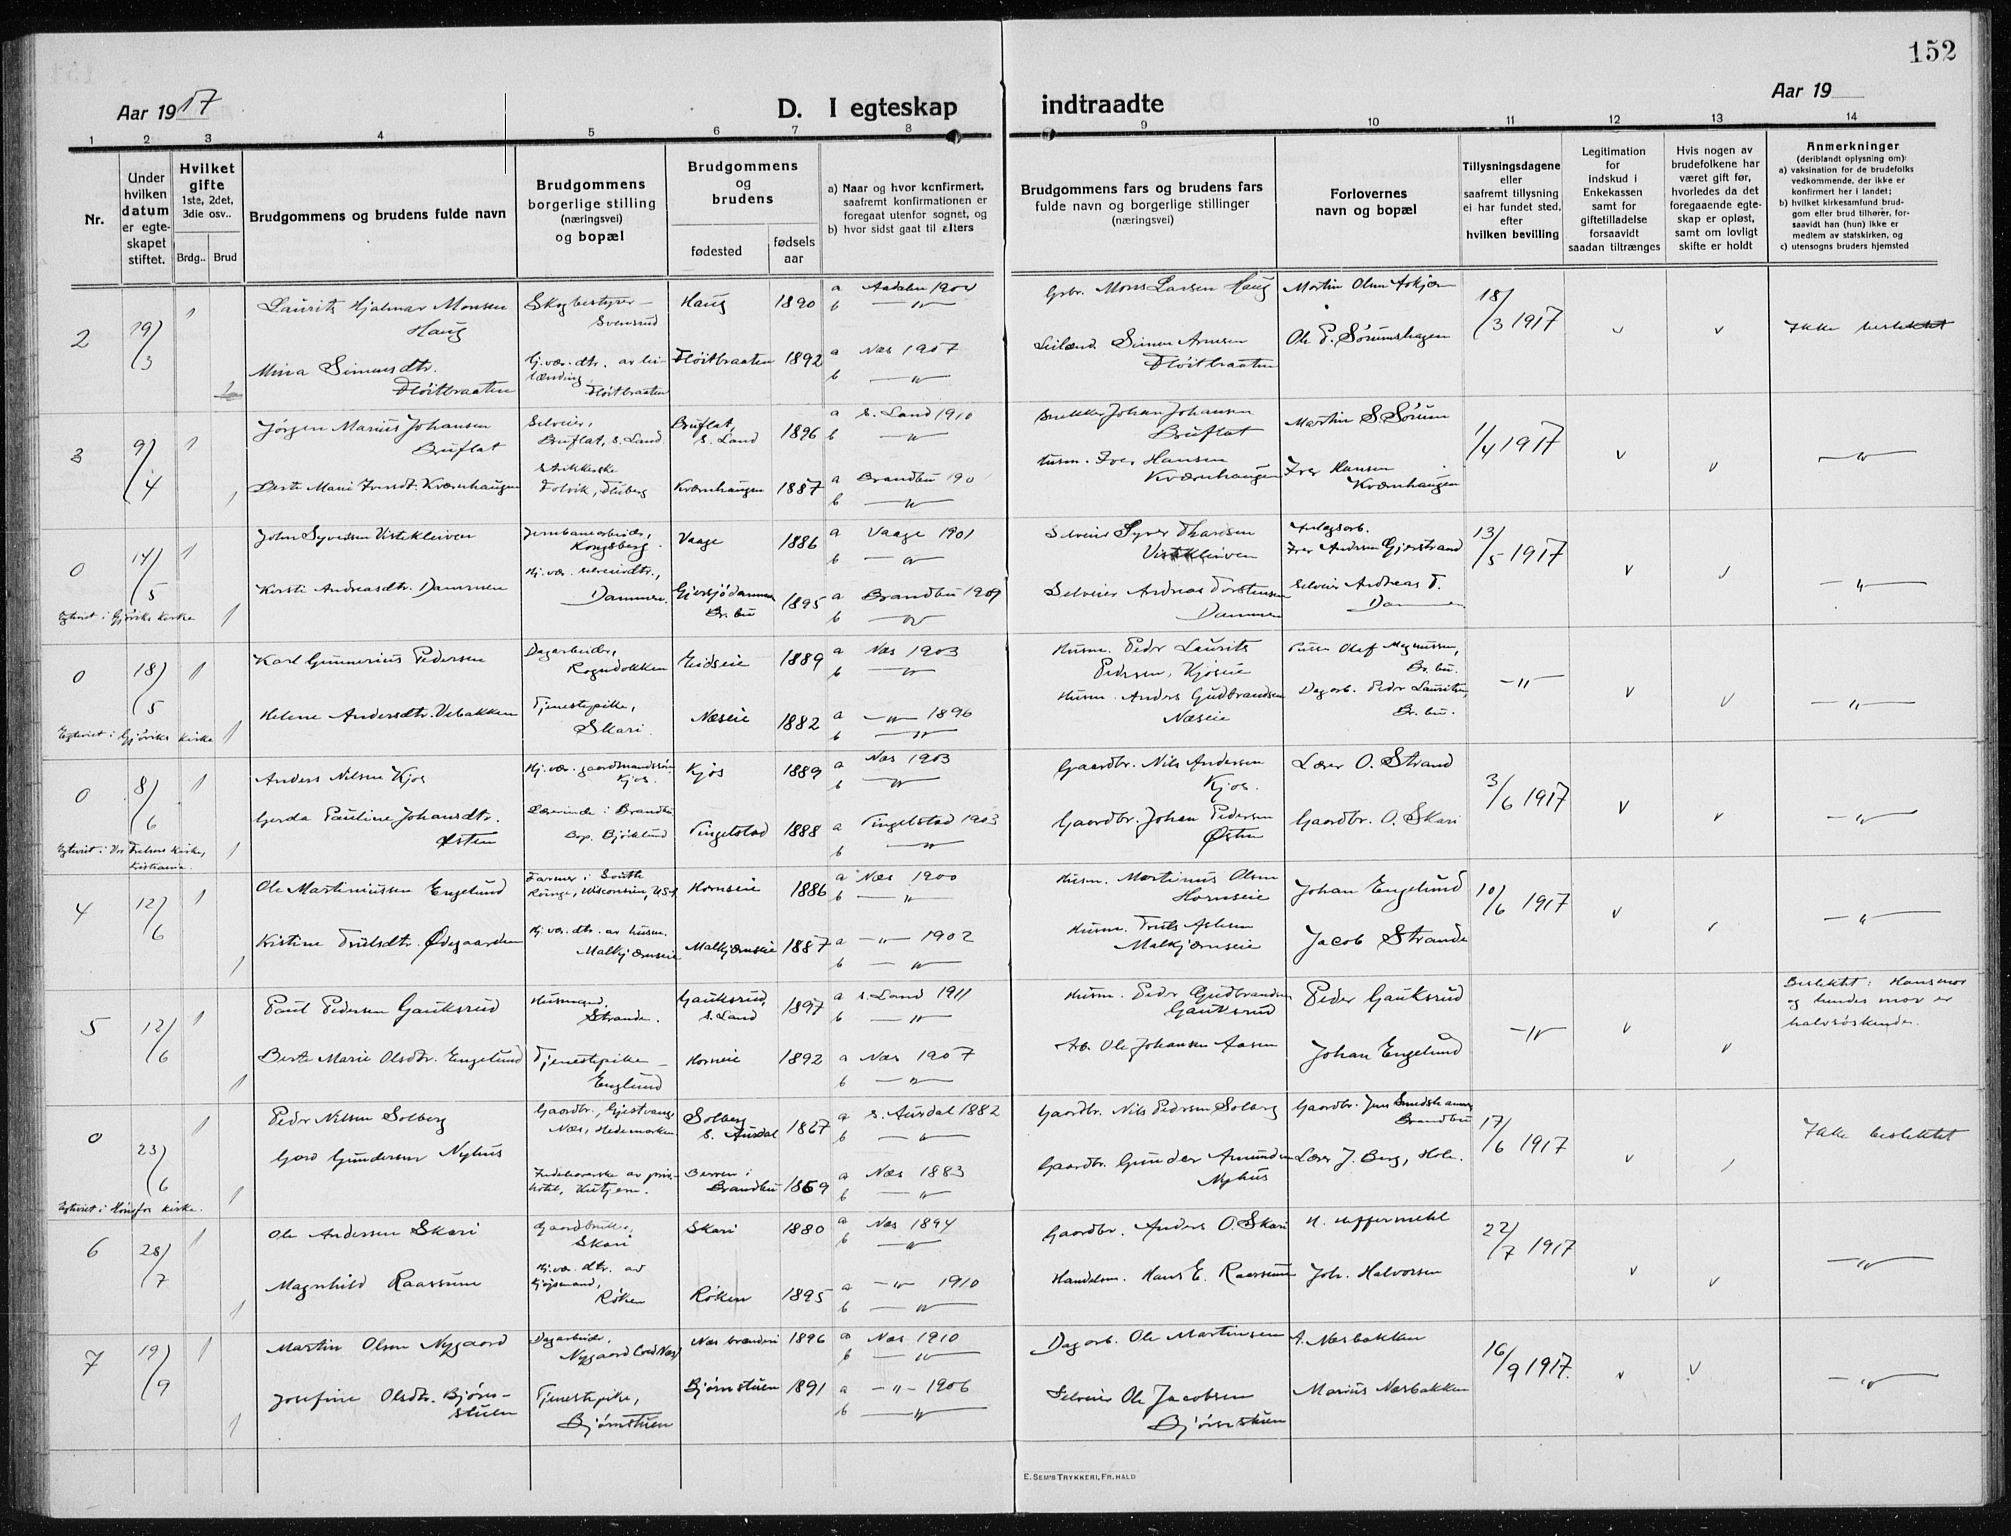 152
Aar 1917
D. I egteskap indtraadte
Aar 19
1 2 3 4 5 6 7 8 9 10 11 12 13 14
Nr.
Under
hvilken
datum
er egte-
skapet
stiftet.
Hvilket
gifte
1ste, 2det,
3die osv..
Brdg.. Brud
Brudgommens og brudens fulde navn
Brudgommens
borgerlige stilling
(næringsvei)
og bopæl
Brudgommens
og
brudens
fødested
fødsels
aar
a) Naar og hvor konfirmert,
saafremt konfirmationen er
foregaat utenfor sognet, og
b) hvor sidst gaat til alters
Brudgommens fars og brudens fars
fulde navn og borgerlige stillinger
(næringsvei)
Forlovernes
navn og bopæl
Tillysningsdagene
eller
saafremt tillysning
ei har fundet sted,
efter
hvilken bevilling
Legitimation
for
indskud i
Enkekassen
samt for
giftetilladelse
forsaavidt
saadan tiltrænges
Hvis nogen av
brudefolkene har
været gift før,
hvorledes da det
foregaaende egte-
skap er opløst,
samt om lovligt
skifte er holdt
Anmerkninger
(deriblandt oplysning om):
a) vaksination for de brudefolks
vedkommende, der ikke er
konfirmert her i landet;
b) hvilket kirkesamfund brud-
gom eller brud tilhører, for-
saavidt han (hun) ikke er
medlem av statskirken, og
c) utensogns bruders hjemsted
2 19/3 1 Laurits Hjalmar Monsen
Haug
Skogbestyrer
Svensrud
Haug 1890
a Aadalen
b —"—
Gbr. Mons Larsen Haug
Martin Olsen
18/3 1917 v v Ikke beslektet
Mina Simensdtr.
Fløitbraaten
Hj.vær. dtr. av lei-
lænding
Fløitbraaten
Fløitbraaten 1892
a Næs 1907
b —"—
Leilænd. Simen Arnesen
Fløitbraaten
Ole P. Sørumshagen
3 9/4 1 Jørgen Marius Johansen
Bruflat
Selveier,
Bruflat, S. Land
Bruflat,
S. Land 1896
a S. Land 1910
b —"—
Johan Johansen
Bruflat
Martin S. Sørum
1/4 1917 v v —"—
1 Berte Marie Iversdt. Kværnhaugen
Strikkerske
Fluberg
Kværnhaugen 1887
a Brandbu 190
b —"—
Husm. Iver Hansen
Kværnhaugen
Iver Hansen
Kværnhaugen
0 14/5 1 John Syversen Vistekleiven
Jernbanearbeider,
Kongsberg.
Vaage 1886
a Vaage 1901
b —"—
Selveier Syver Thoresen
Vistekleiven
Anlægsarb.
Iver Andersen Gjerstrand
13/5 1917 v v —"—
1 Kirsti Andreasdtr. Dammen
Hj.vær. selveierdtr.,
Dammen.
Gjersjødammen
Br.bu 1895
a Brandbu 1909
b —"—
Selveier Andreas Torstensen
Dammen
Selveier Andreas T.
Dammen
Egteviet i Gjøviks kirke
0 18/5 1 Karl Gunnerius Pedersen
Dagarbeider,
Rognedokken
Eidseie 1889
a Næs 1903
b —"—
Husm. Peder Laurits
Pedersen, Kjøseie
Olaf Magnussen,
Br.bu.
—"— v v —"—
1 Helene Andersdtr. Vebakken
Tjenestepike,
Skari.
Næseie 1882
a —"— 1896
b —"—
Husm. Anders Gudbrandsen
Næseie
Dagarb. Peder Lauritsen,
Br.bu.
Egteviet i Gjøviks kirke
0 8/6 1 Anders Nilsen Kjos
Hj.vær. gaardmandssøn
Kjos.
Kjos 1889
a Næs 1903
b —"—
Gaardbr. Nils Andersen
Kjos.
Lærer O. Strand
3/6 1917 v v —"—
1 Gerda Pauline Johansdtr.
Østen
Lærerinde i Brandbu
Bop. Bjørklund
Tingelstad 1888
a Tingelstad 1903
b —"—
Gaardbr. Johan Pedersen
Østen
Gaardbr. O. Skari
Egteviet i Vor Frelsers kirke,
Kristiania.
4 12/6 1 Ole Martiniussen Engelund
Farmer i South
Range, Wisconsin, USA
Hornseie 1886
a Næs 1900
b —"—
Husm. Martinus Olsen
Hornseie
Johan Engelund
10/6 1917 v v —"—
1 Kristine Trulsdtr. Ødegaarden
Hj.vær. dtr. av husm.
Malkjærnseie
Malkjærnseie 1887
a —"— 1902
b —"—
Husm. Truls Aslesen
Malkjærnseie
Jacob Strande
5 12/6 1 Paul Pedersen Gauksrud
Husmand,
Strande.
Gauksrud,
S. Land 1897
a S. Land 1911
b —"—
Husm. Peder Gudbrandsen
Gauksrud
Peder Gauksrud
—"— v v
Beslektet: Hans mor
og hendes mor er
halvsøskende.
1 Berte Marie Olsdtr. Engelund
Tjenestepike
Englund
Horneie 1892
a Næs 1907
b —"—
Arb. Ole Johansen Aasen
Johan Engelund
0 23/6 1 Peder Nilsen Solberg
Gaardbr., Gjestvang,
Næs, Hedemarken
Solberg
S. Aurdal 1867
a S. Aurdal 1882
b —"—
Gaardbr. Nils Pedersen Solberg
Gaardbr. Jens Smedshammer
Brandbu
17/6 1917 v v Ikke beslektet
1 Goro Gundersen Nyhus
Indehaverske av priv.
hotel, Kutjern.
i
Brandbu 1869
a Næs 1883
b —"—
Gaardbr. Gunder Amundsen
Nyhus
Lærer J. Berg, Hole.
Egteviet i Hønefos kirke.
6 28/7 1 Ole Andersen Skari
Gaardbruker,
Skari
Skari 1880
a Næs 1894
b —"—
Gaardbr. Anders O. Skari
H. Uppermehl
22/7 1917 v v —"—
1 Magnhild Raassum
Hj.vær. dtr. av
kjøpmand,
Røken
Røken 1895
a —"— 1910
b —"—
Handelsm. Hans E. Raassum
Joh. Halvorsen
7 19/9 1 Martin Olsen Nygaard
Dagarbeider,
Nygaard (ved Næs)
Næs brænderi 1896
a Næs 1910
b —"—
Dagarb. Ole Martinsen
A. Næsbakken
16/9 1917. v v —"—
1 Josefine Olsdtr. Bjørn-
stuen
Tjenestepike,
Bjørnstuen
Bjørnstuen 1891
a —"— 1906
b —"—
Selveier Ole Jacobsen
Bjørnstuen
Marius Næsbakken
E. SEM'S TRYKKERI, FR.HALD